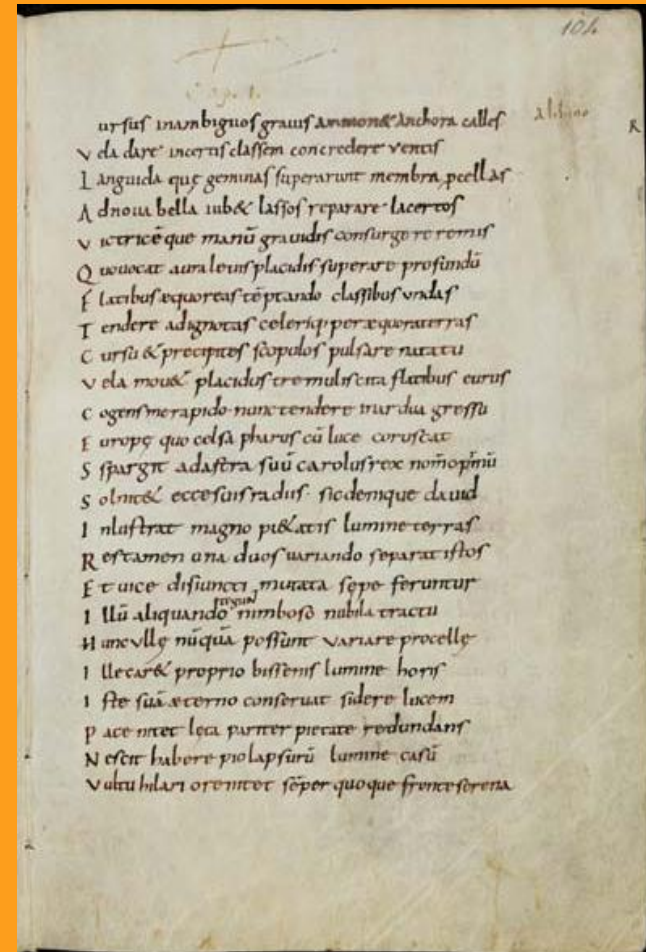 104
Cap. I.
albino
R
ursus inambiguos gravis ammon& anchora calles
V da dare incertis classem concredere ventis
L anguida quę geminas superarunt membra pcellas
A dnova bella iub& lassos reparare lacertos
V ictricēque manū gravidis consurgere remis
Q uo vocat aura levis placidis superare profundū
F latibus æquoreas tēptando classibus undas
T endere adignotas celeriq; per æquora terras
C ursu & precipites scopulos pulsare natatu
V ela mov& placidus tremulis cita flatibus eurus
C ogens me rapido nunc tendere in ardua gressu
E uropę quo celsa pharus cū luce coruscat
S pargit adastra suū carolus rex
S ol nit& ecce suis radiis sic denique david
I nlustrat magno pi&atis lumine terras
R es tamen una duos variando separat istos
E t vice disiuncti mutata sępe feruntur
I llū aliquando tegun nimboso nubila tractu
H unc ullę nūquā possunt variare procellę
I lle car& proprio bissenis lumine horis
I ste suā æterno conservat sidere lucem
P ace nitet lęta pariter pietate redundans
N escit habere pio lapsurū lumine casū
V ultu hilari ore nitet sēper quoque fronte serena